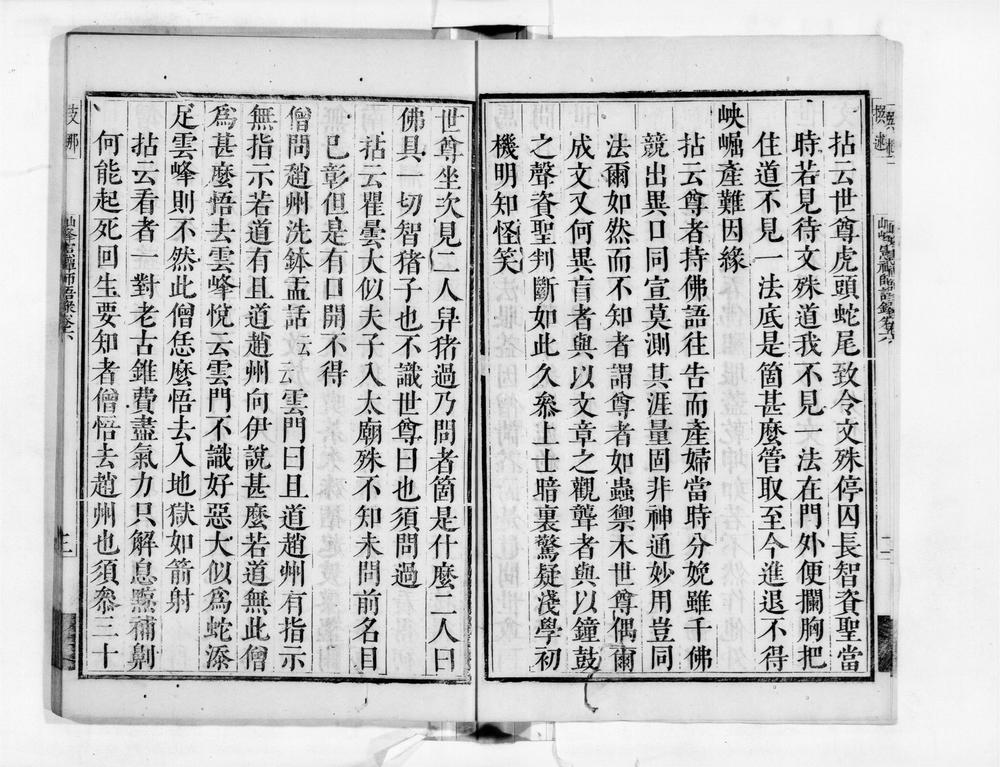 拈云世尊虎頭蛇尾致令文殊停囚長智資聖當
時若見待文殊道我不見一法在門外便攔胸把
住道不見一法底是箇甚麼管取至今進退不得
峽崛產難因緣
拈云尊者持佛語往告而產婦當時分娩雖千佛
競出異口同宣莫測其涯量固非神通妙用豈同
法爾如然而不知者謂尊者如蟲禦木世尊偶爾
成文又何異盲者與以文章之觀聾者與以鐘鼓
之聲資聖判斷如此久叅上士暗裏驚疑淺學初
機明知怪笑
世尊坐次見二人舁猪過乃問者箇是什麼二人曰
佛具一切智猪子也不識世尊曰也須問過
拈云瞿曇大似夫子入太廟殊不知未問前名目
已彰但是有口開不得
僧問趙州洗鉢盂話云雲門曰且道趙州有指示
無指示若道有且道趙州向伊說甚麼若道無此僧
爲甚麼悟去雲峰悅云雲門不識好惡大似爲蛇添
足雲峰則不然此僧恁麼悟去入地獄如箭射
拈云看者一對老古錐費盡氣力只解息黥補劓
何能起死回生要知者僧悟去趙州也須叅三十
支那